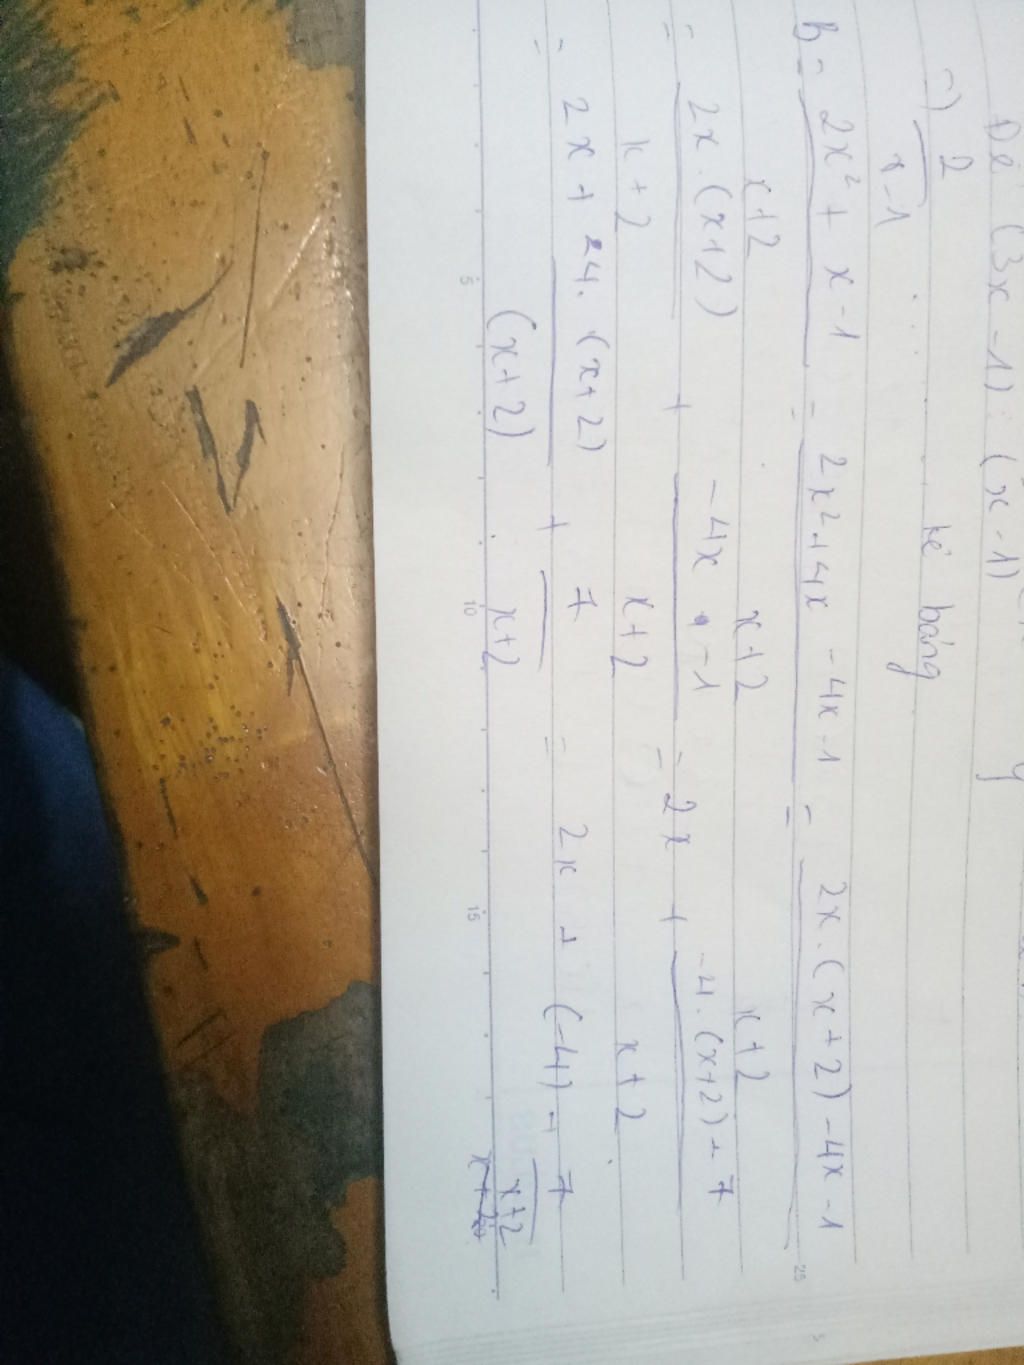 Để (3x-1) : (x-1)
=) 2/(x-1) kẻ bảng
B = (2x² + x - 1)/(x+2) = (2x² + 4x - 4x - 1)/(x+2) = (2x.(x+2) - 4x - 1)/(x+2)
= (2x.(x+2))/(x+2) + (-4x . -1)/(x+2) = 2x + (-4.(x+2) + 7)/(x+2)
= 2x + (-4.(x+2))/(x+2) + 7/(x+2) = 2x + (-4) + 7/(x+2)
5 10 15 25